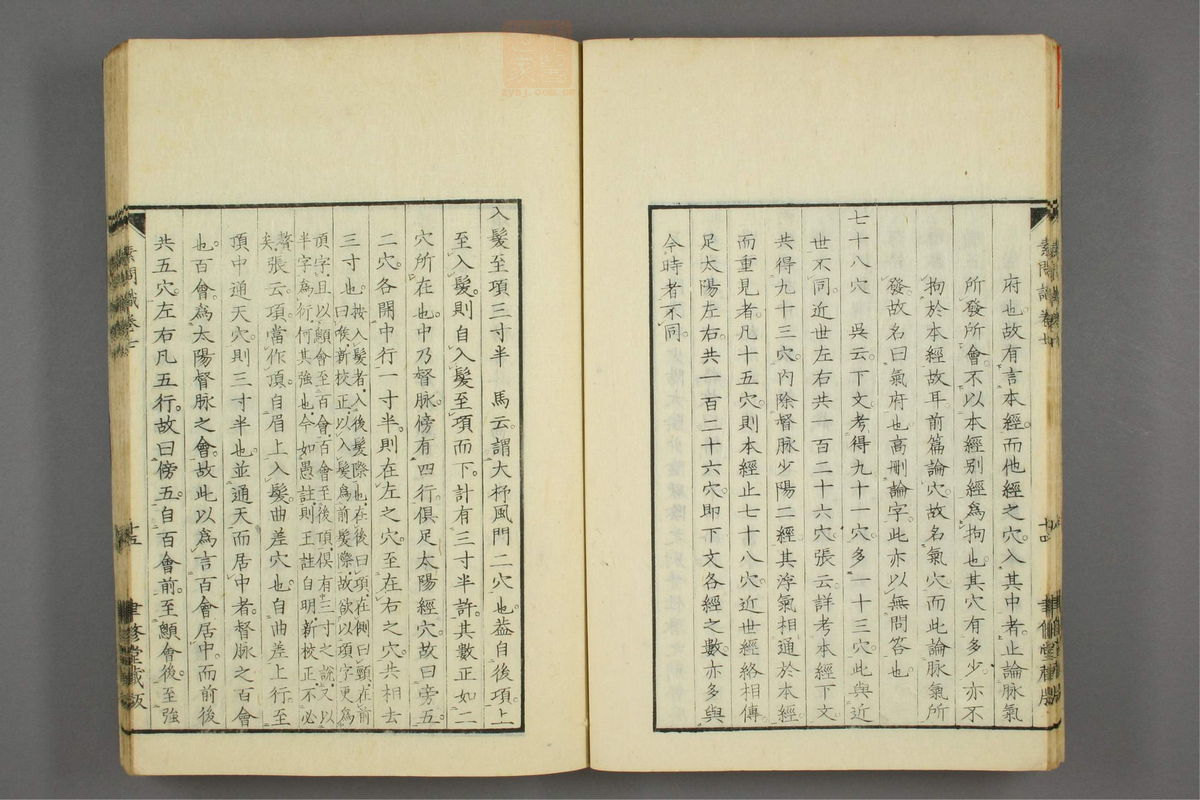 府也故有言本經而他經之穴入其中者止論脉氣
所發所會不以本經別經爲拘也其穴有多少亦不
拘於本經故耳前篇論穴故名氣穴而此論脉氣所
發故名曰氣府也高刪論字此亦以無問答也
七十八穴 吳云下文考得九十一穴多一十三穴此與近
世不同近世左右共一百二十六穴張云詳考本經下文
共得九十三穴內除督脉少陽二經其浮氣相通於本經
而重見者凡十五穴則本經止七十八穴近世經絡相傳
足太陽左右共一百二十六穴即下文各經之數亦多與
今時者不同
入髮至項三寸半 馬云謂大杼風門二穴也蓋自後項上
至入髮則自入髮至項而下計有三寸半許其數正如二
穴所在也中乃督脉傍有四行俱足太陽經穴故曰旁五
二穴各開中行一寸半則在左之穴至在右之穴共相去
三寸也按入髮者入後髮際也在後曰項在側曰頸在前
曰喉新校正以入髮爲前髮際故欲以項字更爲
頂字且以顖會至百會百會至後頂俟有三寸之說又以
半字爲衍何其強也今如愚註則王註自明新校正不必
贅矣張云項當作頂自眉上入髮曲差穴也自曲差上行至
頂中通天穴則三寸半也並通天而居中者督脉之百會
也百會爲太陽督脉之會故此以爲言百會居中而前後
共五穴左右凡五行故曰傍五自百會前至顖會後至強
素問識卷七
十五
聿修堂藏版
十四